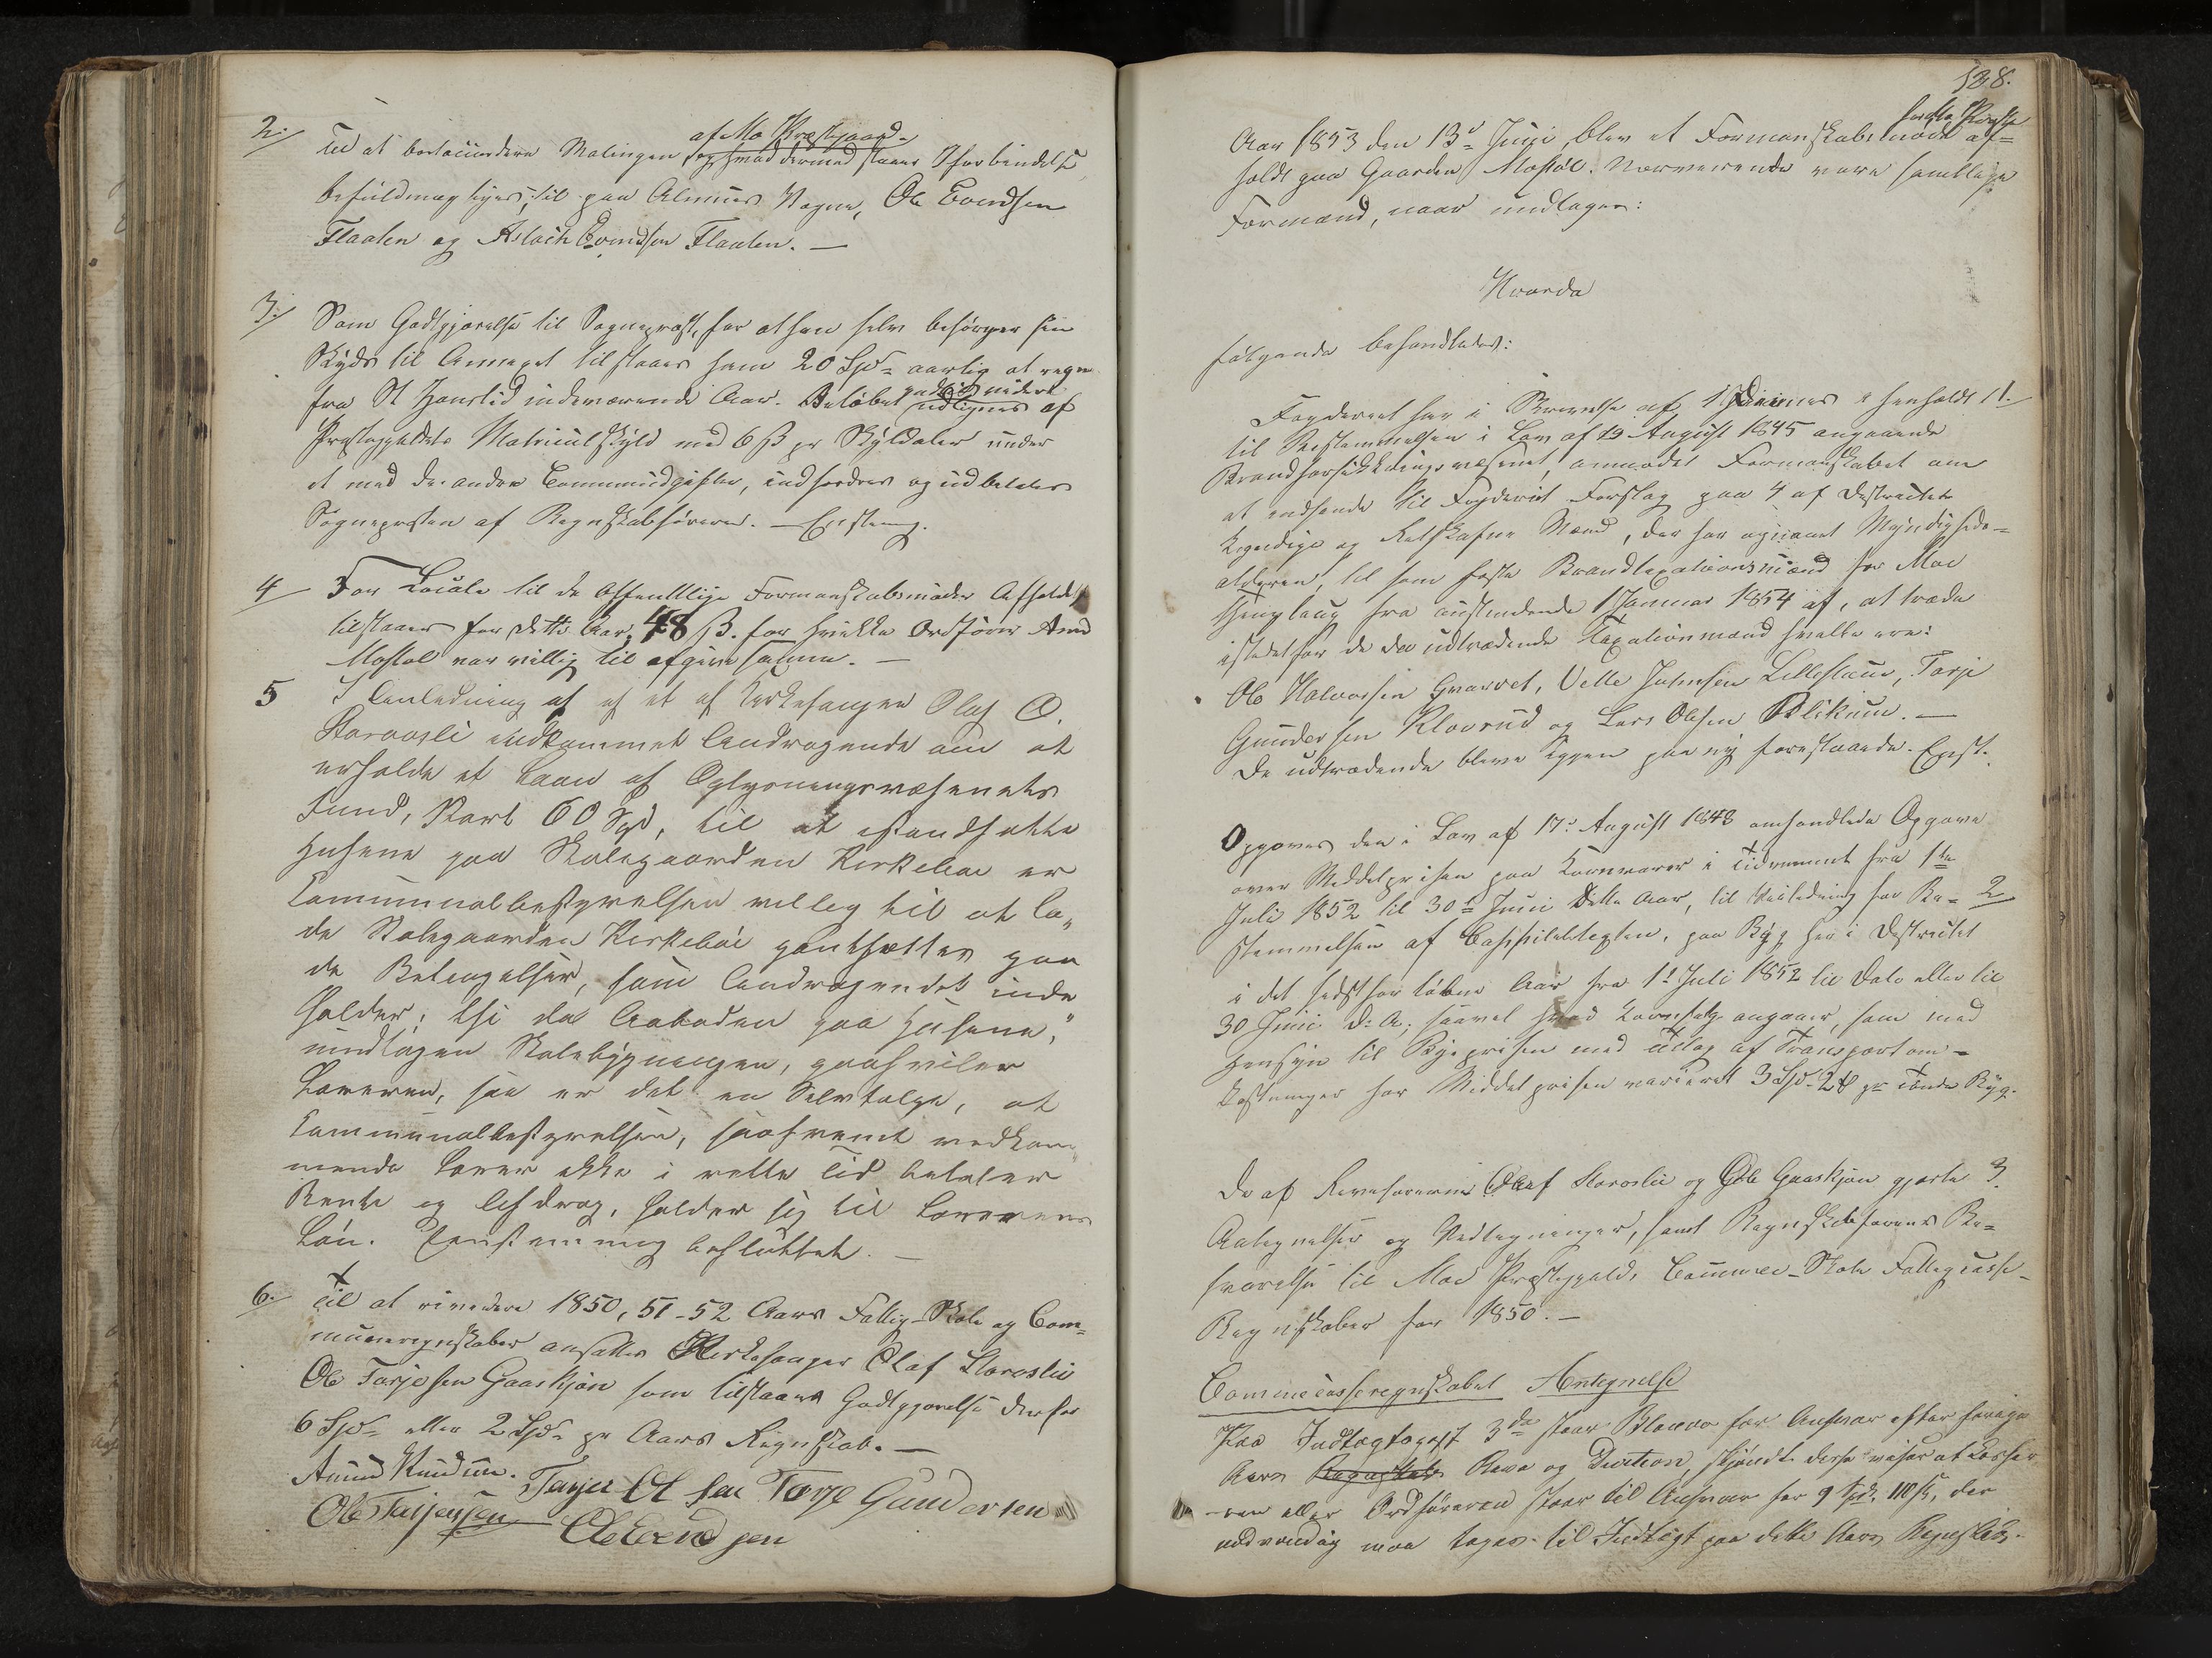 2./
af Mo Præstegaard
Til at bortaccordere Malingen og hvad dermed staaer I forbindelse
befuldmægtiges, til paa Almues Vegne, Ole Evendsen
Flaaten og Aslach Evendsen Flaaten. —
3./
Som Godtgjørelse til Sognepræst, for at han selv besørger sin
Skyds til Annexet tilstaaes ham 20 Spd aarlig at regne
fra St Hanstid indeværende Aar. Beløbet udlignes af
Præstegjeldets Matriculskyld med 6 ß pr Skyldaler under
et med de andre Communudgifter, indfordres og udbetales
Sognepresten af Regnskabsføreren. — Enstemig.
4 For Locale til de Offentlige Formanskabsmøder Afholdelse
tilstaaes for dette Aar, 48 ß. for hvilke Ordfører Amund
Mostøl var villig til afgive samme. —
5 I Anledning af et af Kirkesanger Olaf O.
Storaasli indkommet Andragende om at
erholde et Laan af Oplysningsvæsenets
Fund, stort 60 Spd, til at istandsætte
Husene paa Skolegaarden Kirkebøe er
Communalbestyrelsen villig til at la„
de Skolegaarden Kirkebøe pantsættes paa
de Betingelser, som Andragendet inde„
holder; thi da Aaboden paa Husene,
undtagen Skolebygningen, paahviler
Læreren, saa er det en Selvfølge, at
Communalbestyrelsen, saafremt vedkom„
mende Lærer ikke i rette Tid betaler
Rente og Afdrag, holder sig til Lærerens
Løn. Eenstemmig besluttet. —
6./ Til at revidere 1850, 51-52 Aars Fattig-Skole og Com=
muneregnskaber ansattes Kirkesanger Olaf Storoslie
Ole Tarjesen Gaaskjøn som tilstaaes Godtgjørelse derfor
6 Spd eller 2 Spd pr Aars Regnskab. —
Amund Knudsen. Tarjer Olsen Torje Gundersen
Ole Tarjesen Ole Evendsen
138.
Aar 1853 den 13d Juni, blev et Formanskabsmøde af=
holdt paa Gaarden Mostøl. Nærværende vare samtlige
Formænd, naar undtages:
Hvorda
følgende behandledes:
Fogderiet har i Skrivelse af 1 dennes i henhold 1./
til Bestemmelsen i Lov af 19 August 1845 angaaende
Brandforsikkringsvæsenet, anmodet Formanskabet om
at indsende til Fogderiet Forslag paa 4 af Districtets
kyndige og Retskafne Mænd, der har opnaaet Myndigheds=
alderen, til som faste Brandtaxationsmænd for Moe
Thinglaug fra anstundende 1 Januar 1854 af, at træde
istedetfor de da udtrædende Taxationmænd hvilke ere:
Ole Halvorsen Qvarvet, Velle Johnsen Lillestaul, Tarje
Gundersen Klovrud og Lars Olsen Blikum. —
De udtrædende bleve igjen paa ny forestaaede. Enst.
Opgaves den i Lov af 17d August 1848 omhandlede Opgave
over Middelprisen paa Kornvarer i Tidrummet fra 1ste
Juli 1852 til 30d Juni dette Aar, til Veiledning for Be= 2
stemmelsen af Capitelstaxten, paa Byg her i Districtet
i det sidst forløbne Aar fra 1d Juli 1852 til Dato eller til
30 Juni d: A; saavel hvad Kornsalg angaaer, som med
Hensyn til Byeprisen med Tillæg af Transportom=
kostninger har Middelprisen varieret 3 Spd 2 ₰ pr Tønde Byg.
De af Revisorerne Olaf Storoslie og Ole Gaaskjøn gjorte 3.
Antegnelser og Vedtegninger, samt Regnskabsførers Be=
svarelse til Moe Præstegjelds Commune-Skole Fattigcasse-
Regnskaber for 1850. —
Communecasseregnskabet Antegnelse
Paa Indtægtspost 3de staar Blanco for Ansvar efter forrige
Aars Regnskabs Reva og Decition, skjøndt disse viser at Kasser
-ren eller Ordføreren staar til Ansvar for 9 Spd, 110 ß, der
nødvendig maa tages til Indtægt paa dette Aars Regnskab.